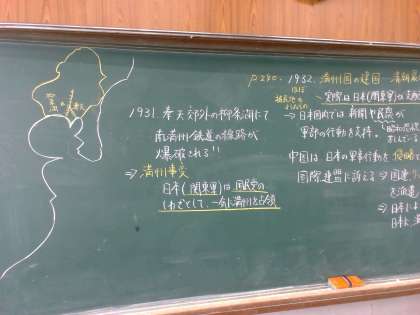 1931. 奉天郊外の柳条湖にて
南満州鉄道の線路が
爆破される!!
⇒ 満州事変
日本(関東軍)は国民党の
しわざとして、一気に満州を占領
P240. 1932. 満州国の建国
実際は日本(関東軍)
⇒ 日本国内では新聞や民衆が
軍部の行動を支持。
中国は日本の軍事行動を侵略
国際連盟に訴える ⇒ 国連
を派遣
⇒ 日本